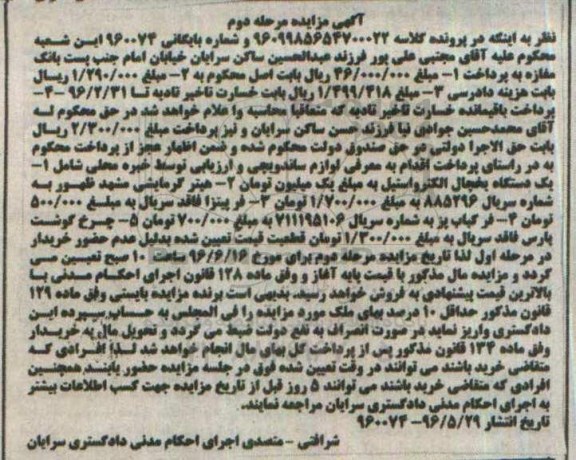 آگهی مزایده مرحله دوم
نظر به اینکه در پرونده کلاسه ۹۶۰۹۹۸۵۶۵۴۷۰۰۰۲۲ و شماره بایگانی ۹۶۰۰۷۴ این شعبه
محکوم علیه آقای مجتبی علی پور فرزند عبدالحسین ساکن سرایان خیابان امام جنب پست بانک
مغازه به پرداخت ۱- مبلغ ۴۶/۰۰۰/۰۰۰ ریال بابت اصل محکوم به ۲- مبلغ ۱/۲۹۰/۰۰۰ ریال
بابت هزینه دادرسی ۳- مبلغ ۱/۴۹۹/۴۱۸ ریال بابت خسارت تاخیر تادیه تا ۹۶/۲/۳۱ -۴-
پرداخت باقیمانده خسارت تاخیر تادیه که متعاقبا محاسبه واعلام خواهد شد در حق محکوم له
آقای محمدحسین جوادی نیا فرزند حسن ساکن سرایان و نیز پرداخت مبلغ ۲/۳۰۰/۰۰۰ ریال
بابت حق الاجرا دولتی در حق صندوق دولت محکوم شده و ضمن اظهار عجز از پرداخت محکوم
به در راستای پرداخت اقدام به معرفی لوازم ساندویچی و ارزیابی توسط خبره محلی شامل ۱-
یک دستگاه یخچال الکترواستیل به مبلغ یک میلیون تومان ۲- هیتر گرمایشی مشهد ظهور به
شماره سریال ۸۸۵۲۹۶ به مبلغ ۱/۷۰۰/۰۰۰ تومان ۳- فر پیتزا فاقد سریال به مبلغ ۵۰۰/۰۰۰
تومان ۴- فر کباب پز به شماره سریال ۷۱۱۱۹۵۱۰۶ به مبلغ ۷۰۰/۰۰۰ تومان ۵- چرخ گوشت
پارس فاقد سریال به مبلغ ۱/۳۰۰/۰۰۰ تومان قطعیت قیمت تعیین شده بدلیل عدم حضور خریدار
در مرحله اول لذا تاریخ مزایده مرحله دوم برای مورخ ۹۶/۶/۱۶ ساعت ۱۰ صبح تعیین می
گردد و مزایده مال مذکور با قیمت پایه آغاز و وفق ماده ۱۲۸ قانون اجرای احکام مدنی با
بالاترین قیمت پیشنهادی به فروش خواهد رسید. بدیهی است برنده مزایده بایستی وفق ماده ۱۲۹
قانون مذکور حداقل ۱۰ درصد بهای ملک مورد مزایده را فی المجلس به حساب سپرده این
دادگستری واریز نماید در صورت انصراف به نفع دولت ضبط می گردد و تحویل مال به خریدار
وفق ماده ۱۳۴ قانون مذکور پس از پرداخت کل بهای مال انجام خواهد شد لذا افرادی که
متقاضی خرید باشند می توانند در وقت تعیین شده فوق در جلسه مزایده حضور یابند همچنین
افرادی که متقاضی خرید باشند می توانند ۵ روز قبل از تاریخ مزایده جهت کسب اطلاعات بیشتر
به اجرای احکام مدنی دادگستری سرایان مراجعه نمایند.
تاریخ انتشار ۹۶/۵/۲۹- ۹۶۰۰۷۴
شرافتی - متصدی اجرای احکام مدنی دادگستری سرایان